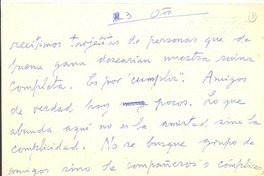 3 Oro
1
recibimos tarjetitas de personas que de
buena gana desearían nuestra ruina
completa. Es por "cumplir". Amigos
de verdad hay pocos. Lo que
abunda aquí no es la amistad sino la
complicidad. No se busque grupo de
amigos sino de compañeros o cómplices,